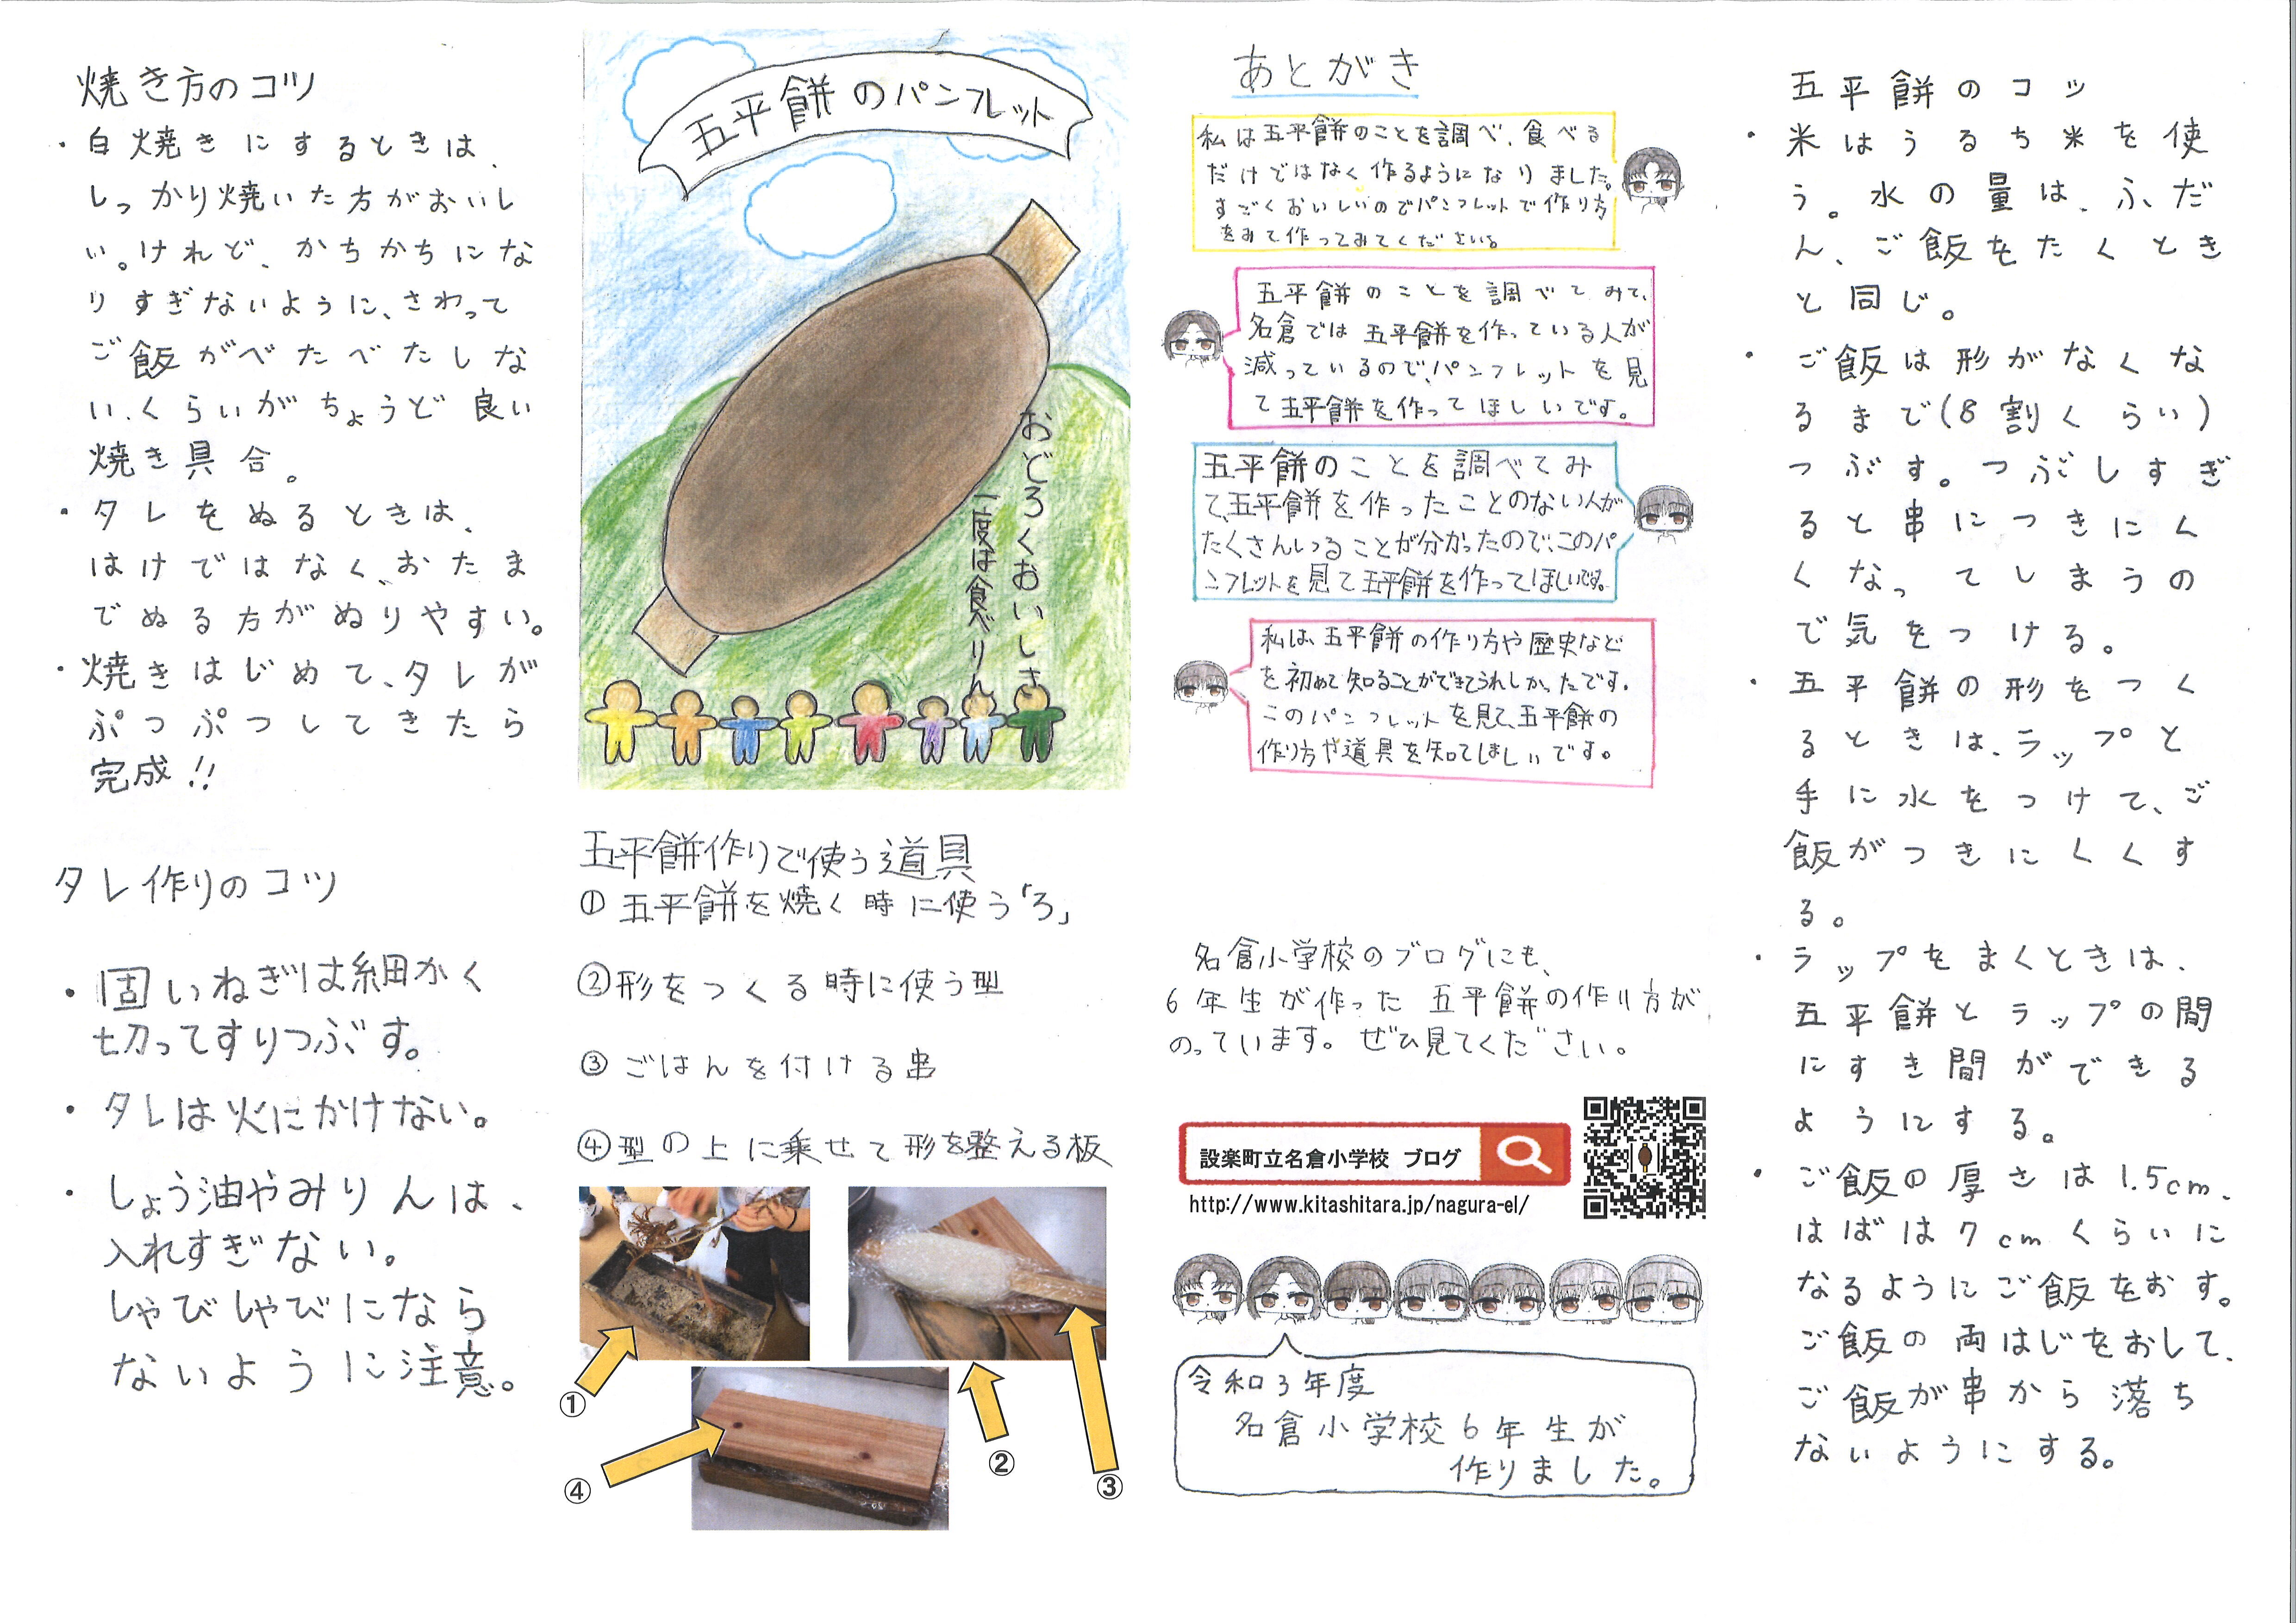 焼き方のコツ
・白焼きにするときは、
しっかり焼いた方がおいし
い。けれど、かちかちにな
りすぎないように、さわって
ご飯がべたべたしな
い、くらいがちょうど良い
焼き具合。
・タレをぬるときは、
はけではなく、おたま
でぬる方がぬりやすい。
・焼きはじめて、タレが
ぷつぷつしてきたら
完成!!
タレ作りのコツ
・固いねぎは細かく
切ってすりつぶす。
・タレは火にかけない。
・しょう油やみりんは、
入れすぎない。
しゃびしゃびになら
ないように注意。
五平餅のパンフレット
おどろくおいしさ
一度は食べりん
五平餅作りで使う道具
①五平餅を焼く時に使う「ろ」
②形をつくる時に使う型
③ごはんを付ける串
④型の上に乗せて形を整える板
①
②
③
④
あとがき
私は五平餅のことを調べ、食べる
だけではなく作るようになりました。
すごくおいしいのでパンフレットで作り方
をみて作ってみてください。
五平餅のことを調べてみて、
名倉では五平餅を作っている人が
減っているので、パンフレットを見
て五平餅を作ってほしいです。
五平餅のことを調べてみ
て、五平餅を作ったことのない人が
たくさんいることが分かったので、このパ
ンフレットを見て五平餅を作ってほしいです。
私は、五平餅の作り方や歴史など
を初めて知ることができてうれしかったです。
このパンフレットを見て、五平餅の
作り方や道具を知てしましいです。
名倉小学校のブログにも、
6年生が作った五平餅の作り方が
のっています。ぜひ見てください。
設楽町立名倉小学校 ブログ
http://www.kitashitara.jp/nagura-el/
令和3年度
名倉小学校6年生が
作りました。
五平餅のコツ
・米はうるち米を使
う。水の量は、ふだ
ん、ご飯をたくとき
と同じ。
・ご飯は形がなくな
るまで(8割くらい)
つぶす。つぶしすぎ
ると串につきにく
くなってしまうの
で気をつける。
・五平餅の形をつく
るときは、ラップと
手に水をつけて、ご
飯がつきにくくす
る。
・ラップをまくときは、
五平餅とラップの間
にすき間ができる
ようにする。
・ご飯の厚さは1.5cm、
はばは7cmくらいに
なるようにご飯をおす。
ご飯の両はじをおして、
ご飯が串から落ち
ないようにする。